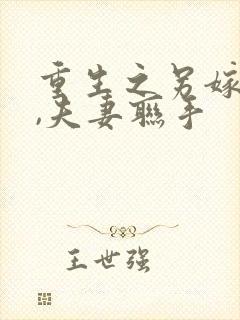 重生之另嫁
,夫妻联手
王世强